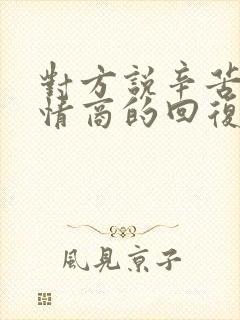 對方說辛苦
情商的回復
風見京子